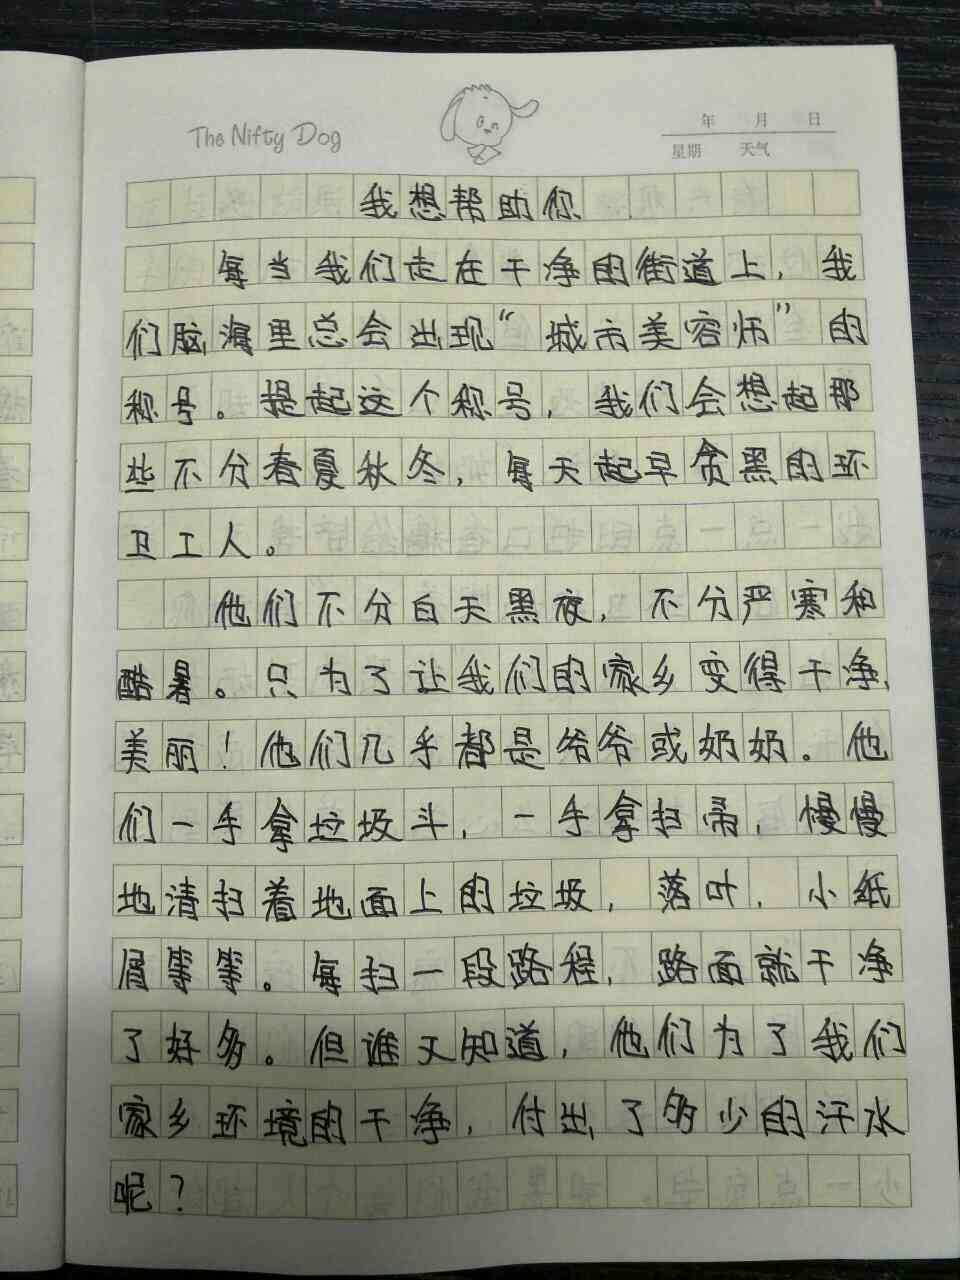 The Nifty Dog
年 月 日
星期 天气
我想帮助你
每当我们走在干净的街道上，我
们脑海里总会出现“城市美容师”的
称号。提起这个称号，我们会想起那
些不分春夏秋冬，每天起早贪黑的环
卫工人。
他们不分白天黑夜，不分严寒和
酷暑。只为了让我们的家乡变得干净、
美丽！他们几乎都是爷爷或奶奶。他
们一手拿垃圾斗，一手拿扫帚，慢慢
地清扫着地面上的垃圾，落叶，小纸
屑等等。每扫一段路程，路面就干净
了好多。但谁又知道，他们为了我们
家乡环境的干净，付出了多少的汗水
呢？